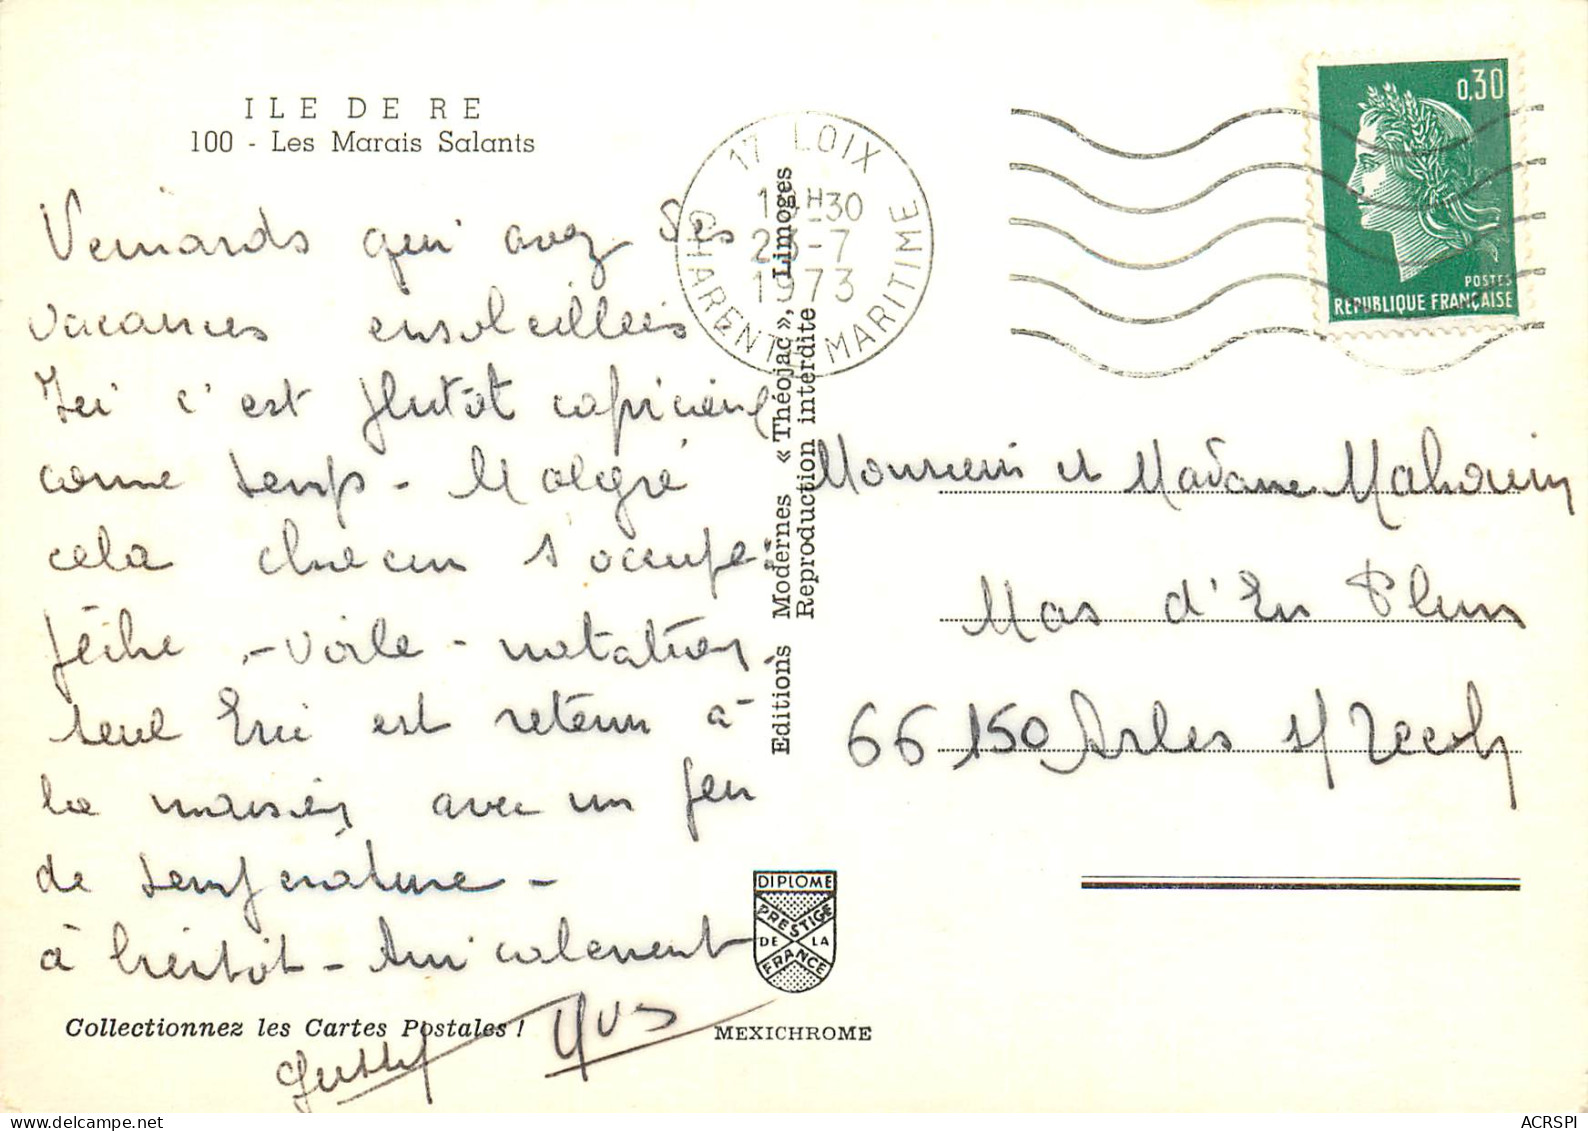 ILE DE RE
100 - Les Marais Salants
Veinards qui avez des
vacances ensoleillées
Ici c'est plutôt capricieux
comme temps - Malgré
cela chacun s'occupe
pêche - voile - natation
seul Eric est retenu à
la maison avec un peu
de température -
à bientôt - Amicalement
Yves
Collectionnez les Cartes Postales !
Editions Modernes « Théojac », Limoges
Reproduction interdite
17 LOIX
CHARENTE MARITIME
H 30
-7
1973
0,30
POSTES
REPUBLIQUE FRANÇAISE
Monsieur et Madame
Mas d'En Plum
66150 Arles s/Tech
DIPLOME
PRESTIGE
DE LA
FRANCE
MEXICHROME
ACRSPI